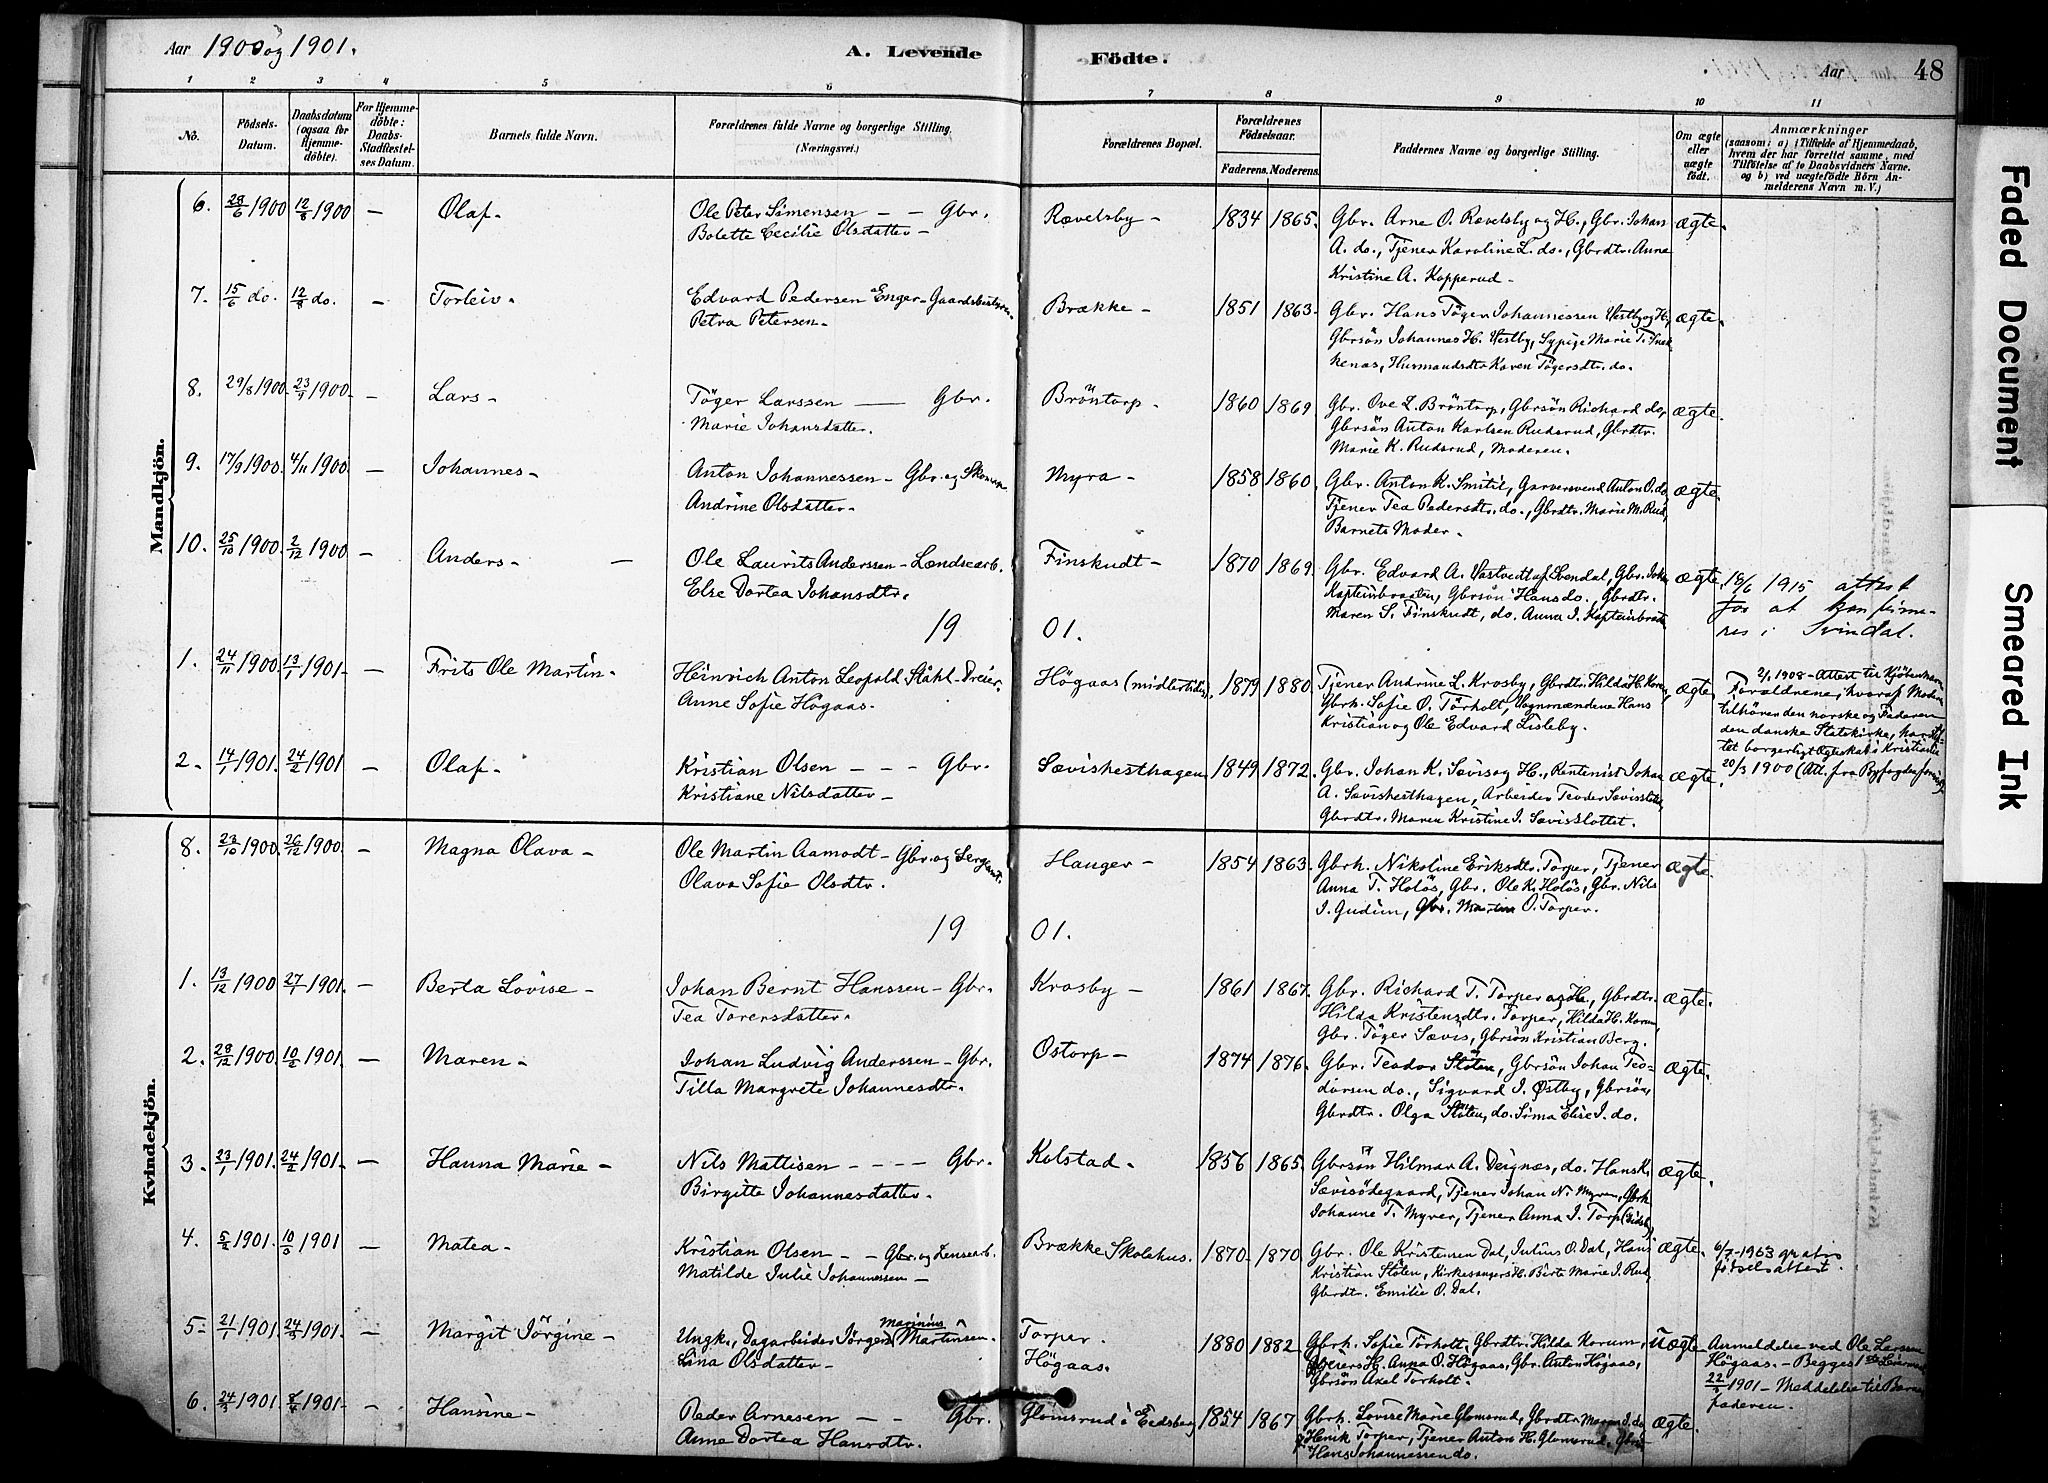 Aar 1900 og 1901. A. Levende Födte. Aar 48
1 2 3 4 5 6 7 8 9 10 11
No. Födsels-Datum. Daabsdatum (ogsaa for Hjemmedöbte). For Hjemmedöbte: Daabs-Stadfæstelses Datum. Barnets fulde Navn. Forældrenes fulde Navne og borgerlige Stilling. (Næringsvei.) Forældrenes Bopæl. Forældrenes Födselsaar. Faderens. Moderens. Faddernes Navne og borgerlige Stilling. Om ægte eller uægte födt. Anmærkninger
(saasom: a) i Tilfælde af Hjemmedaab, hvem der har forrettet samme, med Tilföielse af to Daabsvidners Navne, og b) ved uægtefödte Börn Anmelderens Navn m. V.)
Mandkjön.
6. 28/6 1900 12/8 1900 — Olaf- Ole Peter Simensen — — Gbr. Rævelsby - 1834 1865. Gbr. Arne O. Rævelsby og H., Gbr. Johan ægte.
Bolette Cecilie Olsdatter - A. do., Tjener Karoline L. do., Gbrdtr. Anna
Kristine A. Kopperud -
7. 15/6 do. 12/8 do. - Torleiv. Edvard Pedersen Enger- Gaardsbestyrer. Brække - 1851 1863. Gbr. Hans Töger Johannessen Vestby og H., ægte.
Petra Petersen - Gbrsön Johannes H. Vestby, Sypige Marie T.
kenæs, Husmandsdtr Karen Tögersdtr. do.
8. 29/8 1900. 23/9 1900 - Lars - Töger Larssen — Gbr. Bröntorp - 1860 1869 Gbr. Ove L. Bröntorp, Gbrsön Richard do, ægte.
Marie Johansdatter. Gbrsön Anton Karlsen Rudsrud, Gbrdtr.
Marie K. Rudsrud, Moderen.
9. 17/9 1900. 4/11 1900. - Johannes - Anton Johannessen - Gbr. og Skomag. Myra - 1858 1860 Gbr. Anton K. Smitil, Garversvend Anton O. do, ægte.
Andrine Olsdatter - Tjener Tea Pedersdtr. do., Gbrdtr. Marie M. Rud,
Barnets Moder -
10. 25/10 1900. 2/12 1900 - Anders - — Ole Laurits Anderssen - Lændsearb. Finskudt - 1870 1869. Gbr. Edvard A. Vastvedt af Svendal, Gbr. Joh. ægte. 18/6 1915 attest
Else Dortea Johansdtr. Kapteinbraaten, Gbrsön Hans do, Gbrdtr. for at konfirme-
Maren S. Finskudt, do. Anna I. Kapteinbraat. res i Svindal.
19 01.
1. 24/11 1900. 13/1 1901 - Frits Ole Martin - Heinrich Anton Leopold Ståhl - Dreier. Högaas (midlertidig), 1879 1880. Tjener Andrine L. Krosby, Gbrdtr. Hilda H. Korum, ægte. 2/1 1908 - Attest til Kjöbenhavn
Anne Sofie Högaas. Gbrh. Sofie O. Torholt, Sognemændene Hans Forældrene, hvoraf Moderen
Kristian og Ole Edvard Lisleby. tilhörer den norske og Faderen
den danske Statskirke, har stif-
tet borgerligt Ægteskab i Kristiania
20/3 1900 (Att. fra Byfogden
2. 14/1 1901. 24/2 1901 - Olaf - Kristian Olsen - - - Gbr. Sævishesthagen 1849 1872. Gbr. Johan K. Sævis og H., Rentenist Johan ægte.
Kristiane Nilsdatter - A. Sævishesthagen, Arbeider Teodor Sævisslottet,
Gbrdtr. Maren Kristine I. Sævisslottet.
Kvindekjön.
8. 23/10 1900. 26/12 1900. - Magna Olava - Ole Martin Aamodt - Gbr. og Sergeant. Hanger - 1854 1863. Gbrh. Nikoline Eriksdtr. Torper, Tjener ægte.
Olava Sofie Olsdtr. Anna T. Holös, Gbr. Ole K. Holös, Gbr. Nils
I. Gudim, Gbr. Martin O. Torper.
19 01.
1. 13/12 1900 27/1 1901. - Berta Lovise - Johan Bernt Hanssen - Gbr. Krosby - 1861 1867. Gbr. Richard T. Torper og H., Gbrdtr. ægte.
Tea Torersdatter. Hilda Kristensdtr. Torper, Hilda H. Korum,
Gbr. Töger Sævis, Gbrsön Kristian Berg.
2. 28/12 1900. 10/2 1901. - Maren - Johan Ludvig Anderssen - Gbr. Ostorp - 1874 1876. Gbr. Teodor Slöten, Gbrsön Johan Teo- ægte.
Tilla Margrete Johannesdtr. dorsen do., Sigvard I. Østby, Gbrsön,
Gbrdtr. Olga Slöten, do. Sima Elise I. do.
3. 23/1 1901. 24/2 1901. - Hanna Marie - Nils Mattisen - - - - Gbr. Kolstad - 1856 1865. Gbrsön Hilmar A. Deignæs, do. Hans K. ægte.
Birgitte Johannesdatter. Sævisödegaard, Tjener Johan N. Myren, Gbrh.
Johanne T. Myrer, Tjener Anna I. Torp (Eidsb.)
4. 5/2 1901. 10/3 1901 - Matea - Kristian Olsen - - Gbr. og Lensearb. Brække Skolehus. 1870. 1870 Gbr. Ole Kristensen Dal, Julius O. Dal, Hans ægte. 6/7-1963 gratis
Matilde Julie Johannessen - Kristian Slöten, Kirkesangers H. Berte Marie I. Rud, födselsattest.
Gbrdtr. Emilie O. Dal.
5. 21/1 1901. 24/3 1901. - Margit Jörgine - Ungk., Dagarbeider Jörgen Marinius Martinsen. Torper. 1880 1882. Gbrh. Sofie Torholt, Gbrdtr. Hilda Korum, Uægte. Anmeldelse ved Ole Larssen
Lina Olsdatter - Högaas. Dreiers H. Anna O. Högaas, Gbr. Anton Högaas, Högaas. - Begges 1ste Leiermaal
Gbrsön Axel Torholt. 22/3 1901 - Meddelelse til Barne-
faderen.
6. 24/3 1901. 8/4 1901 - Hansine - Peder Arnesen - - Gbr. Glomsrud i Eidsberg 1854 1867 Gbrh. Lovise Marie Glomsrud, Gbrdtr. Maren I. do, ægte.
Anne Dortea Hansdtr. Henrik Torper, Tjener Anton H. Glomsrud, Gbr.
Hans Johannessen do.
Faded Document
Smeared Ink